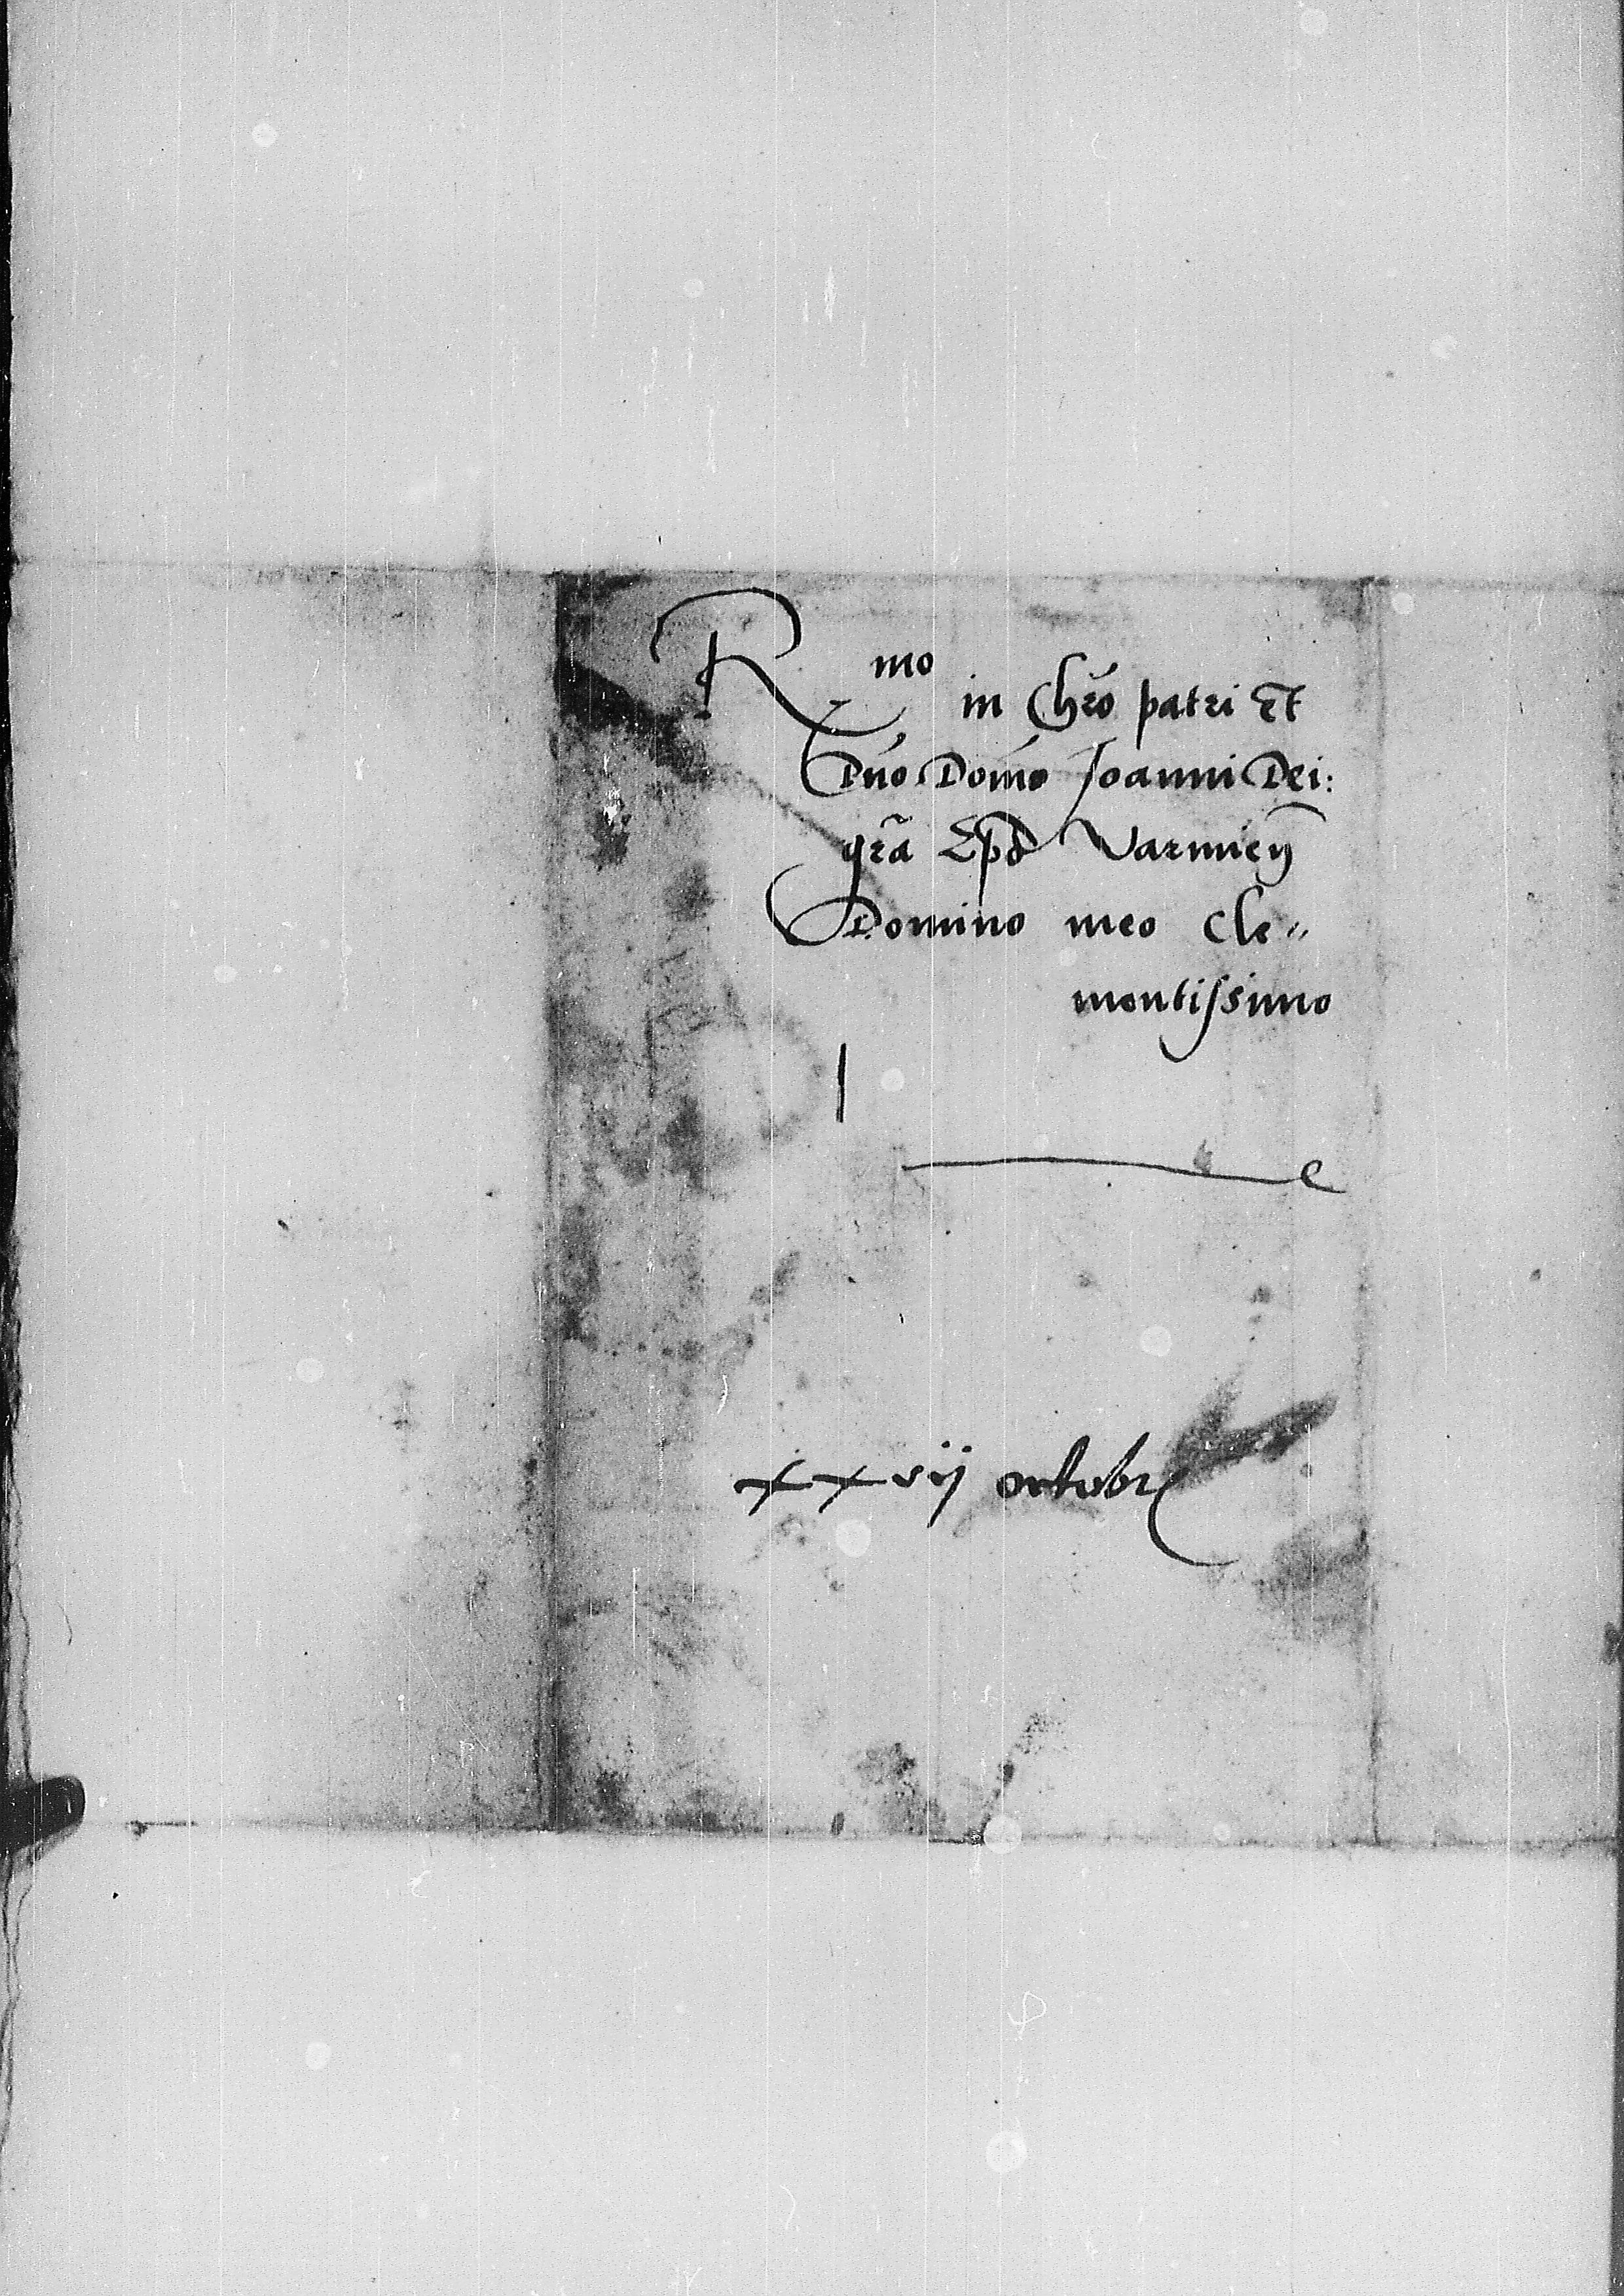 Rmo in Chro patri Et
Dno Domo Joanni Dei:
gra Epo Varmien
Domino meo cle〃
mentissimo
xxvij octobr